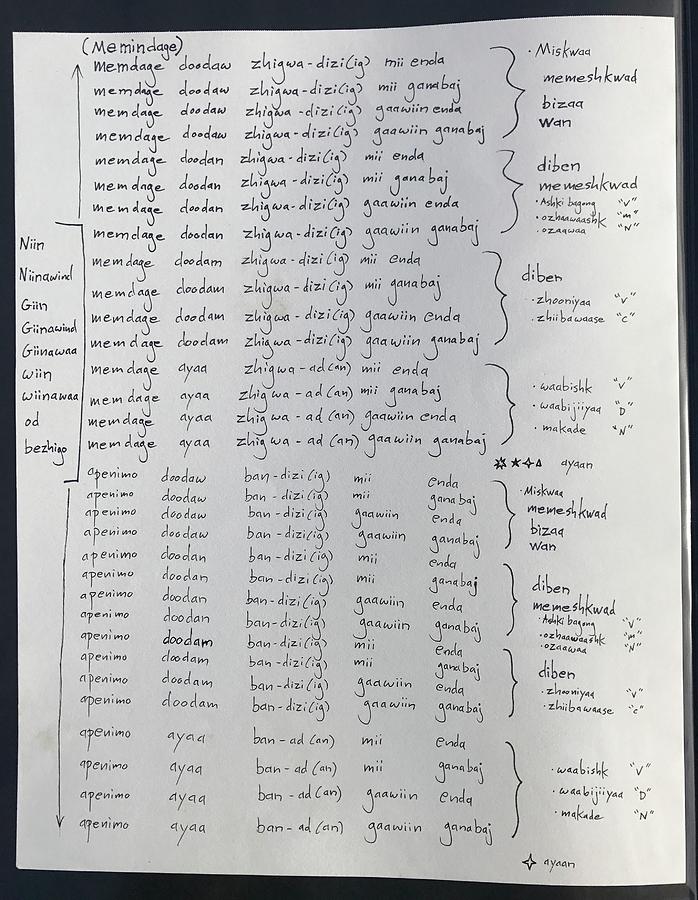 (Memindage)
memdage doodaw zhigwa-dizi(ig) mii enda
memdage doodaw zhigwa-dizi(ig) mii ganabaj
memdage doodaw zhigwa-dizi(ig) gaawiin enda
memdage doodaw zhigwa-dizi(ig) gaawiin ganabaj
· Miskwaa
memeshkwad
bizaa
wan
memdage doodan zhigwa-dizi(ig) mii enda
memdage doodan zhigwa-dizi(ig) mii ganabaj
memdage doodan zhigwa-dizi(ig) gaawiin enda
memdage doodan zhigwa-dizi(ig) gaawiin ganabaj
diben
memeshkwad
· Ashki bagong "V"
· ozhaawaashk "m"
· ozaawaa "N"
Niin
Niinawind
Giin
Giinawind
Giinawaa
wiin
wiinawaa
od
bezhigo
memdage doodam zhigwa-dizi(ig) mii enda
memdage doodam zhigwa-dizi(ig) mii ganabaj
memdage doodam zhigwa-dizi(ig) gaawiin enda
memdage doodam zhigwa-dizi(ig) gaawiin ganabaj
diben
· zhooniyaa "V"
· zhiibawaase "C"
memdage ayaa zhigwa-ad(an) mii enda
memdage ayaa zhigwa-ad(an) mii ganabaj
memdage ayaa zhigwa-ad(an) gaawiin enda
memdage ayaa zhigwa-ad(an) gaawiin ganabaj
· waabishk "V"
· waabijiiyaa "D"
· makade "N"
ayaan
apenimo doodaw ban-dizi(ig) mii enda
apenimo doodaw ban-dizi(ig) mii ganabaj
apenimo doodaw ban-dizi(ig) gaawiin enda
apenimo doodaw ban-dizi(ig) gaawiin ganabaj
· Miskwaa
memeshkwad
bizaa
wan
apenimo doodan ban-dizi(ig) mii enda
apenimo doodan ban-dizi(ig) mii ganabaj
apenimo doodan ban-dizi(ig) gaawiin enda
apenimo doodan ban-dizi(ig) gaawiin ganabaj
diben
memeshkwad
· Ashki bagong "V"
· ozhaawaashk "m"
· ozaawaa "N"
apenimo doodam ban-dizi(ig) mii enda
apenimo doodam ban-dizi(ig) mii ganabaj
apenimo doodam ban-dizi(ig) gaawiin enda
apenimo doodam ban-dizi(ig) gaawiin ganabaj
diben
· zhooniyaa "V"
· zhiibawaase "C"
apenimo ayaa ban-ad(an) mii enda
apenimo ayaa ban-ad(an) mii ganabaj
apenimo ayaa ban-ad(an) gaawiin enda
apenimo ayaa ban-ad(an) gaawiin ganabaj
· waabishk "V"
· waabijiiyaa "D"
· makade "N"
ayaan